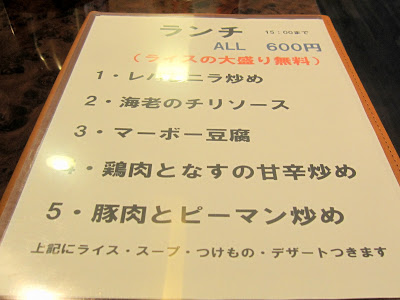 ランチ 15:00まで
ALL 600円
(ライスの大盛り無料)
1・レバニラ炒め
2・海老のチリソース
3・マーボー豆腐
4・鶏肉となすの甘辛炒め
5・豚肉とピーマン炒め
上記にライス・スープ・つけもの・デザートつきます